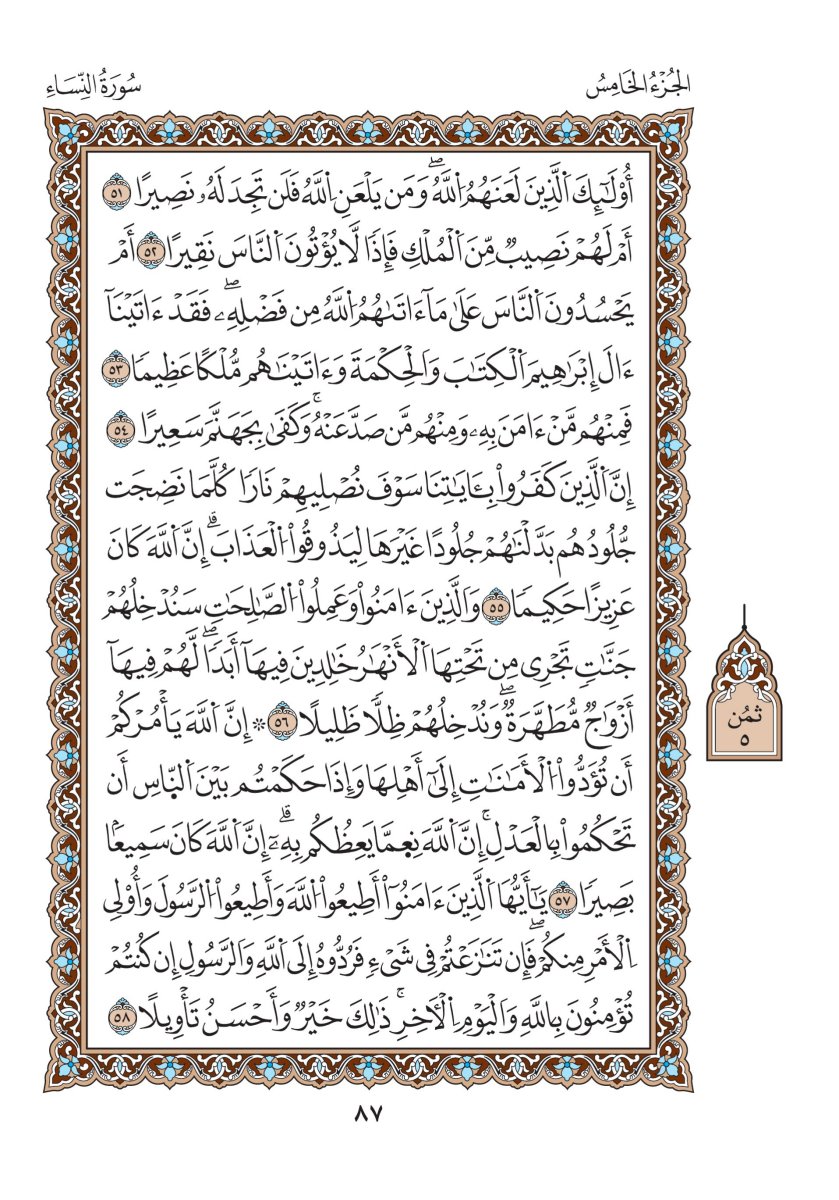 الجُزْءُ الخَامِسُ
سُورَةُ النِّسَاءِ
أُوْلَٰٓئِكَ اَ۬لَّذِينَ لَعَنَهُمُ اُ۬للَّهُۖ وَمَن يَلْعَنِ اِ۬للَّهُ فَلَن تَجِدَ لَهُۥ نَصِيرًا ٥١
أَمْ لَهُمْ نَصِيبٞ مِّنَ اَ۬لْمُلْكِ فَإِذٗا لَّا يُؤْتُونَ اَ۬لنَّاسَ نَقِيرًا ٥٢ أَمْ
يَحْسُدُونَ اَ۬لنَّاسَ عَلَىٰ مَآ ءَاتَىٰهُمُ اُ۬للَّهُ مِن فَضْلِهِۦۖ فَقَدْ ءَاتَيْنَآ
ءَالَ إِبْرَٰهِيمَ اَ۬لْكِتَٰبَ وَالْحِكْمَةَ وَءَاتَيْنَٰهُم مُّلْكًا عَظِيمٗا ٥٣
فَمِنْهُم مَّنْ ءَامَنَ بِهِۦ وَمِنْهُم مَّن صَدَّ عَنْهُۚ وَكَفَىٰ بِجَهَنَّمَ سَعِيرًا ٥٤
إِنَّ اَ۬لَّذِينَ كَفَرُواْ بِـَٔايَٰتِنَا سَوْفَ نُصْلِيهِمْ نَارٗا كُلَّمَا نَضِجَت
جُّلُودُهُم بَدَّلْنَٰهُمْ جُلُودًا غَيْرَهَا لِيَذُوقُواْ اُ۬لْعَذَابَۗ إِنَّ اَ۬للَّهَ كَانَ
عَزِيزًا حَكِيمٗا ٥٥ وَالَّذِينَ ءَامَنُواْ وَعَمِلُواْ اُ۬لصَّٰلِحَٰتِ سَنُدْخِلُهُمْ
جَنَّٰتٖ تَجْرِي مِن تَحْتِهَا اَ۬لْأَنْهَٰرُ خَٰلِدِينَ فِيهَآ أَبَدٗاۖ لَّهُمْ فِيهَآ
أَزْوَٰجٞ مُّطَهَّرَةٞۖ وَنُدْخِلُهُمْ ظِلّٗا ظَلِيلًا ٥٦ ۞ إِنَّ اَ۬للَّهَ يَأْمُرْكُمْ
أَن تُؤَدُّواْ اُ۬لْأَمَٰنَٰتِ إِلَىٰٓ أَهْلِهَا وَإِذَا حَكَمْتُم بَيْنَ اَ۬لنَّاسِ أَن
تَحْكُمُواْ بِالْعَدْلِۚ إِنَّ اَ۬للَّهَ نِعِمَّا يَعِظُكُم بِهِۦٓۗ إِنَّ اَ۬للَّهَ كَانَ سَمِيعَۢا
بَصِيرٗا ٥٧ يَٰٓأَيُّهَا اَ۬لَّذِينَ ءَامَنُوٓاْ أَطِيعُواْ اُ۬للَّهَ وَأَطِيعُواْ اُ۬لرَّسُولَ وَأُوْلِي
اِ۬لْأَمْرِ مِنكُمْۖ فَإِن تَنَٰزَعْتُمْ فِي شَيْءٖ فَرُدُّوهُ إِلَى اَ۬للَّهِ وَالرَّسُولِ إِن كُنتُمْ
تُؤْمِنُونَ بِاللَّهِ وَالْيَوْمِ اِ۬لْأٓخِرِۚ ذَٰلِكَ خَيْرٞ وَأَحْسَنُ تَأْوِيلًا ٥٨
ثُمُن
٥
٨٧